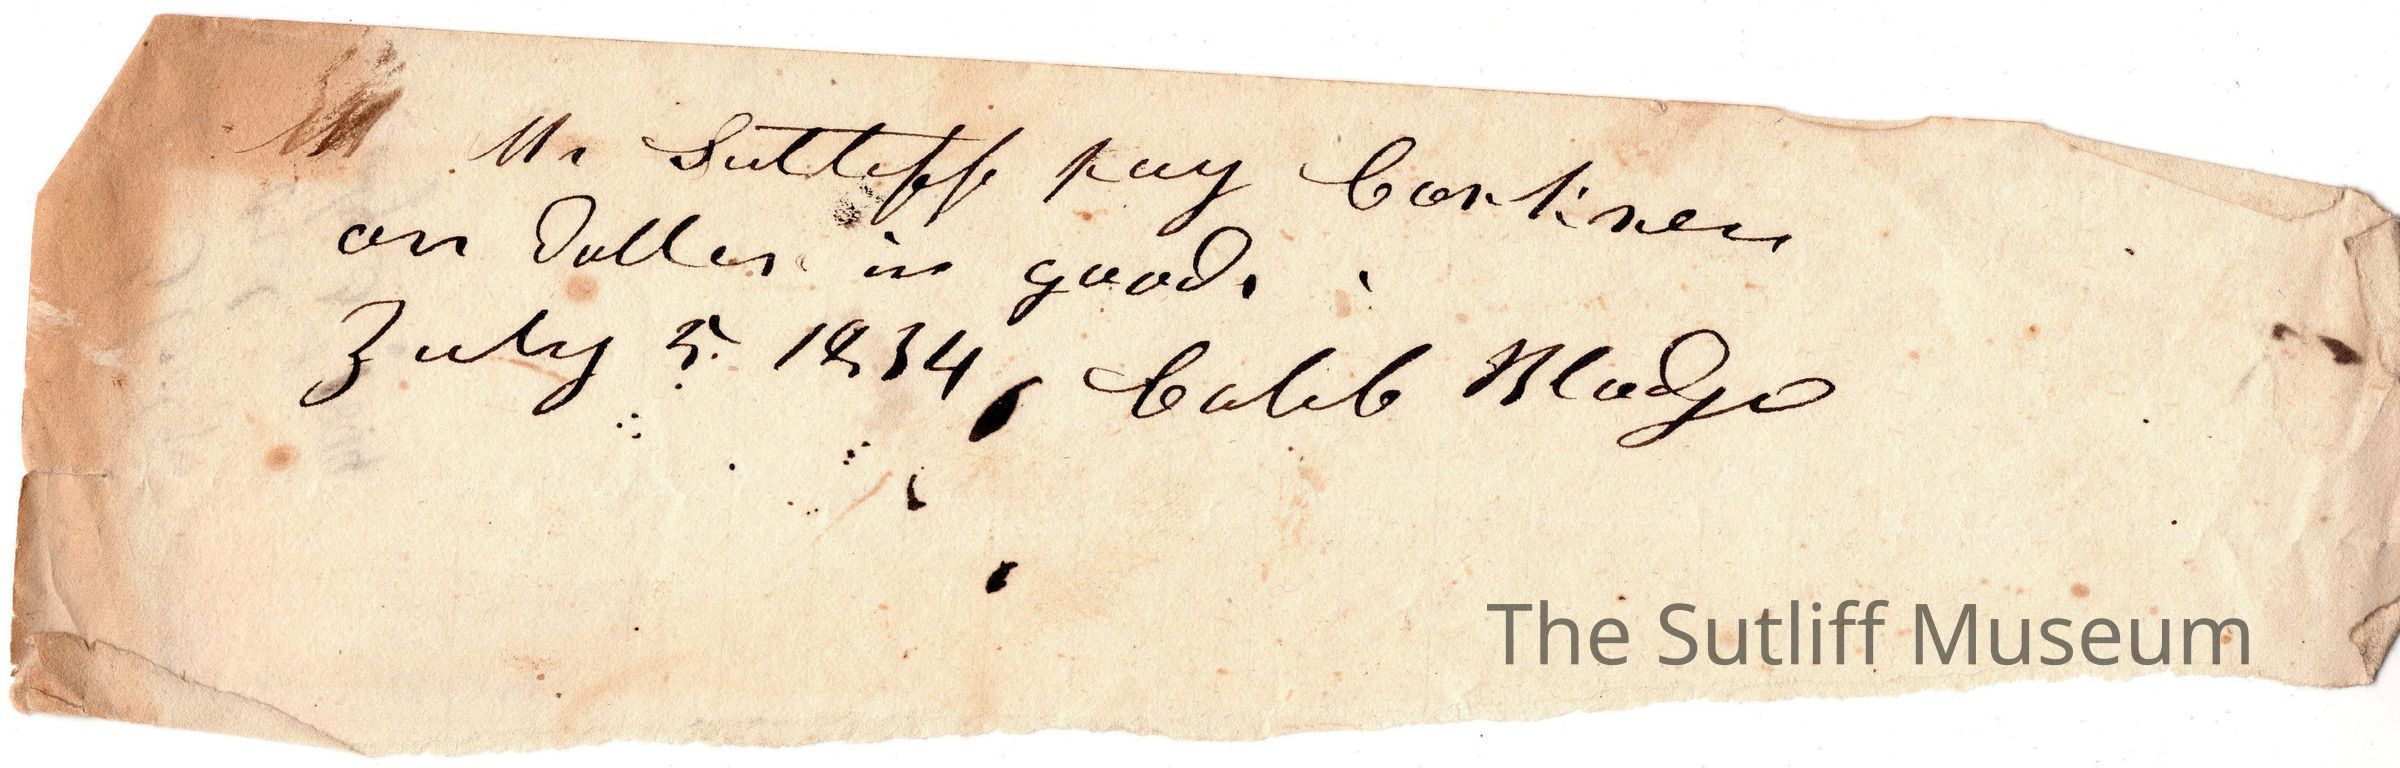 Mr Sutlliff pay
on Doller in goods
July 5 1834 Caleb Blodge
The Sutliff Museum